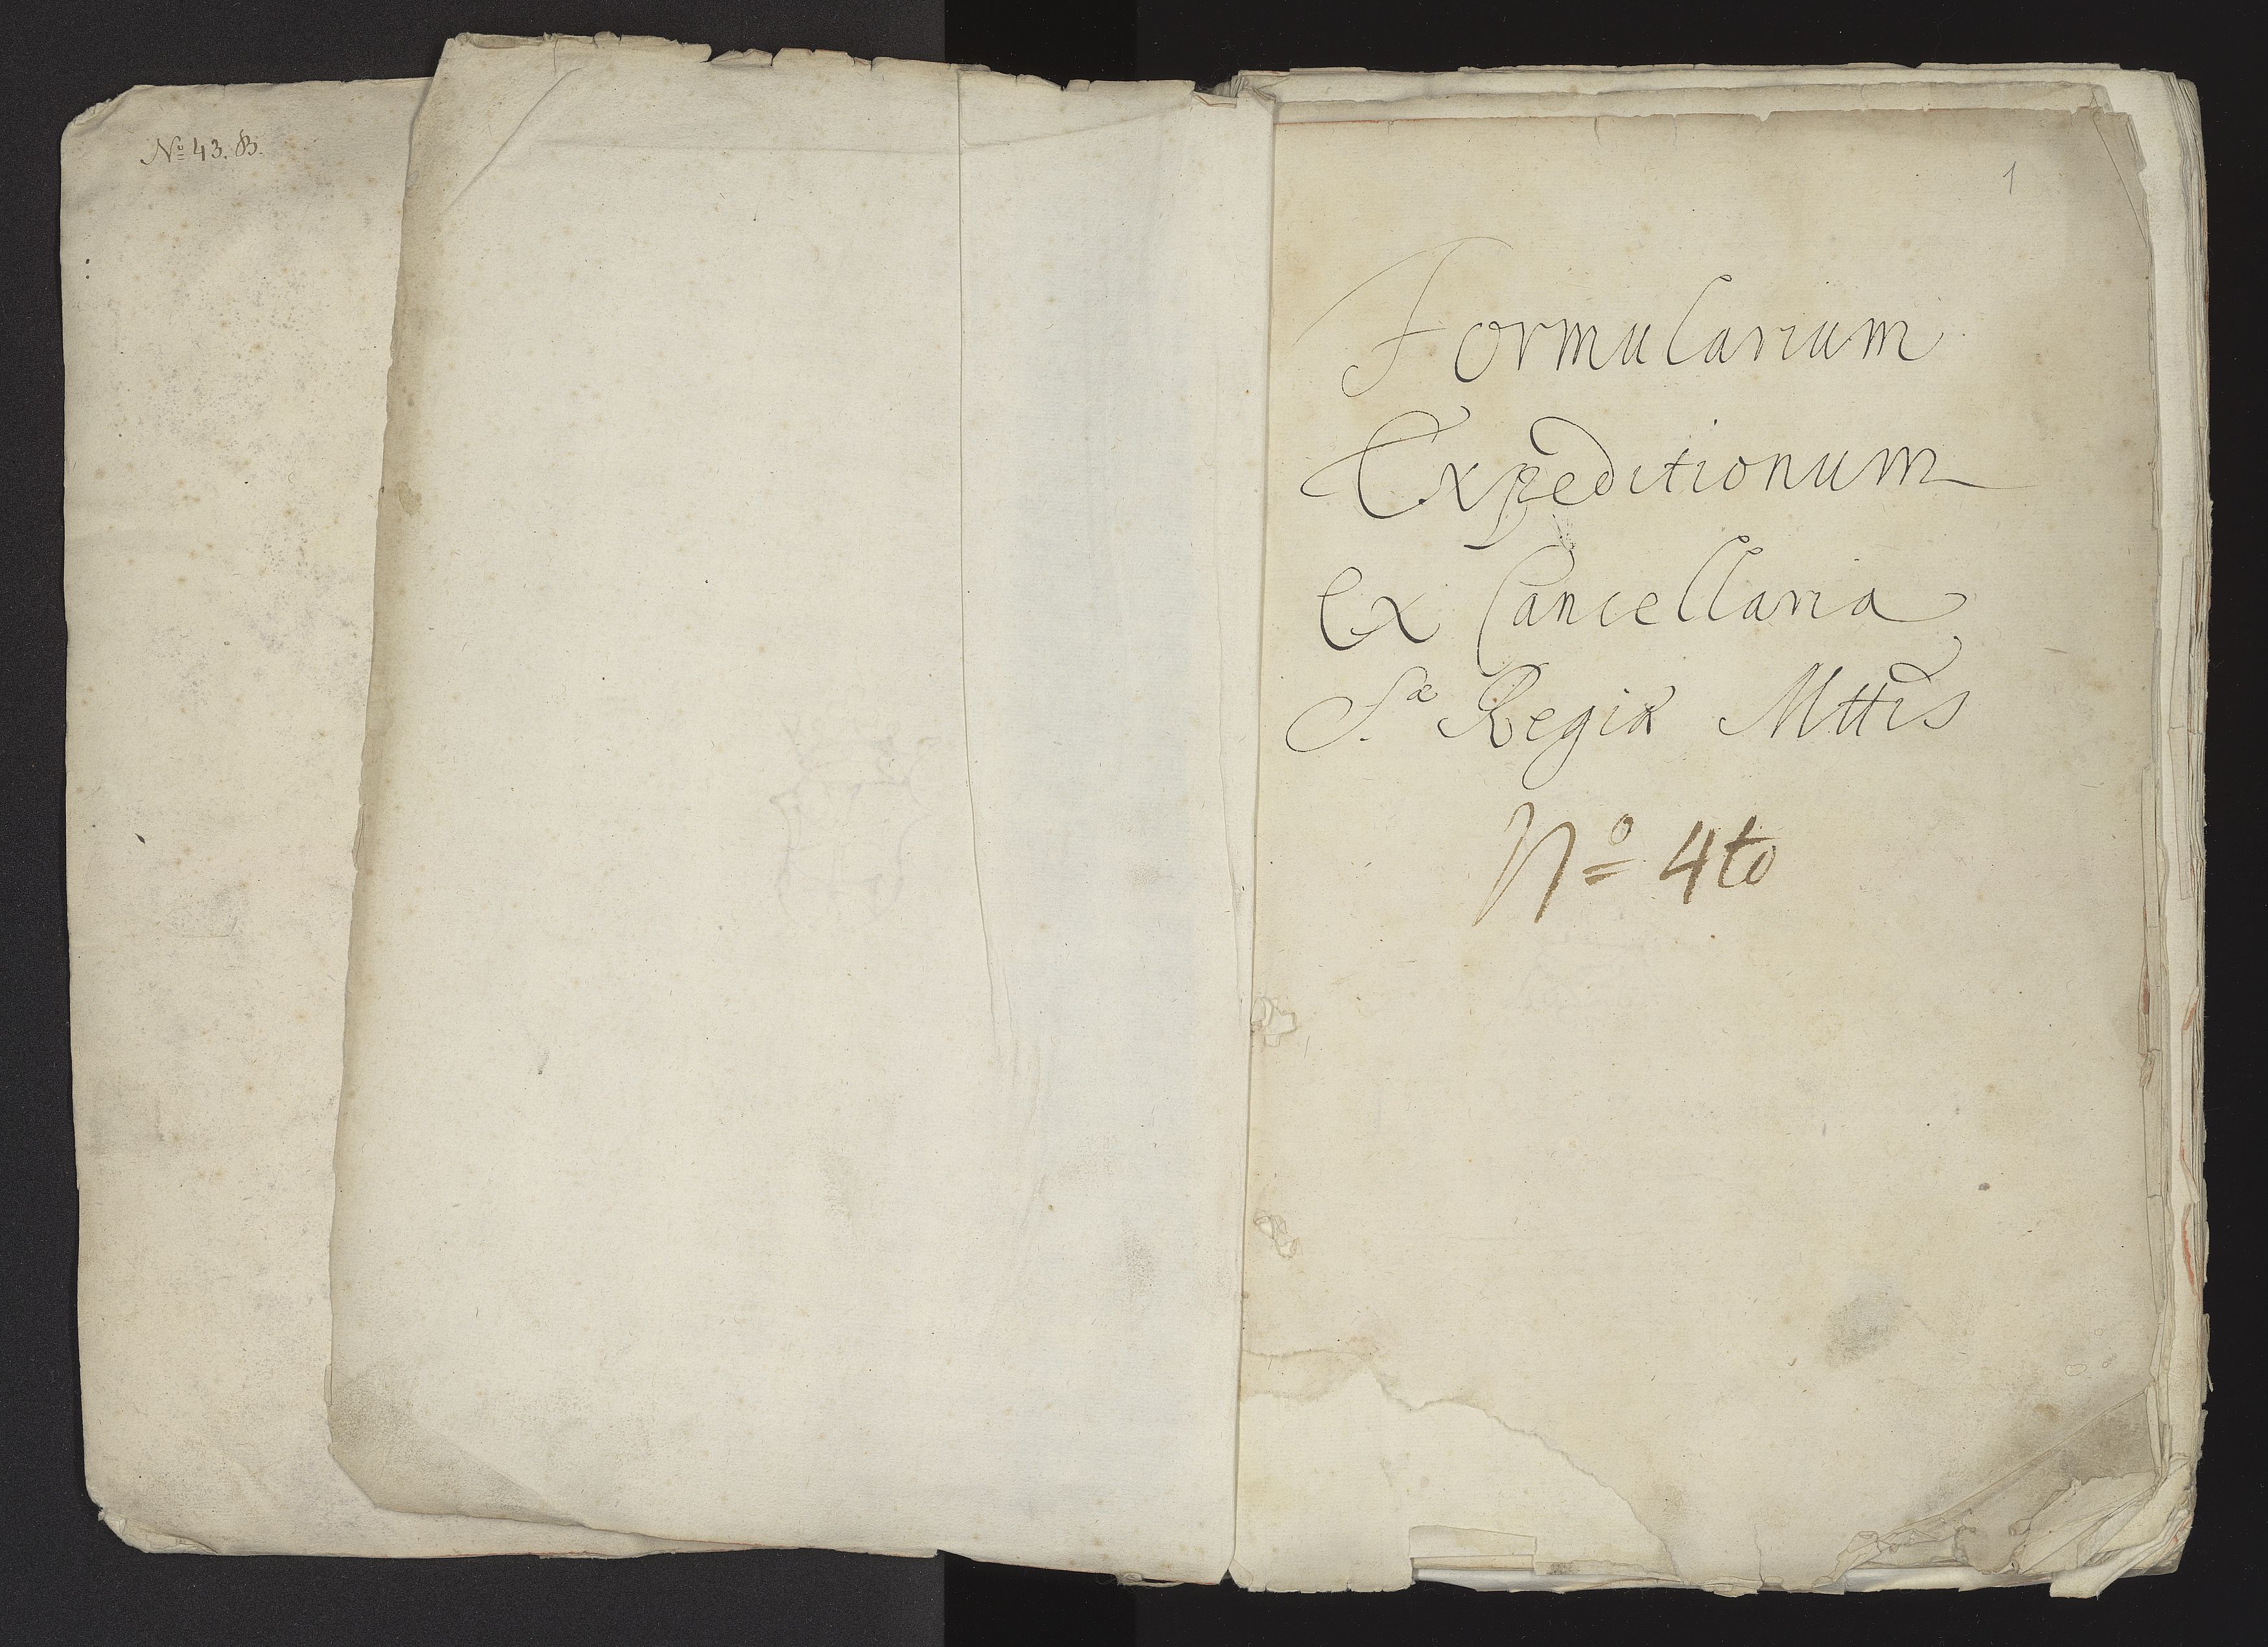 Nº 43. B.
1
Formularium
Expeditionum
ex Cancellaria
S.æ Regiæ Mttis
Nº 4to